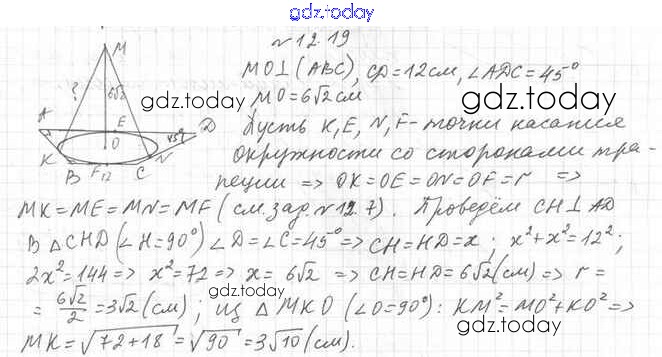 gdz.today
№12.19
MO⊥(ABC), CD=12см, ∠ADC=45°
MO=6√2см
gdz.today
gdz.today
Пусть K, E, N, F - точки касания
окружности со сторонами тра-
пеции => OK=OE=ON=OF=r =>
MK=ME=MN=MF (см. зад. №12.7). Проведём CH⊥AD
В △CHD (∠H=90°) ∠D=∠C=45° => CH=HD=x; x²+x²=12²;
2x²=144 => x²=72 => x=6√2 => CH=HD=6√2(см) => r=
=6√2/2=3√2(см); из △MKO (∠O=90°): KM²=MO²+KO² =>
MK=√72+18=√90=3√10(см).
gdz.today
gdz.today
M
?
6√2
A
E
45°
D
O
K
B
F
12
C
N